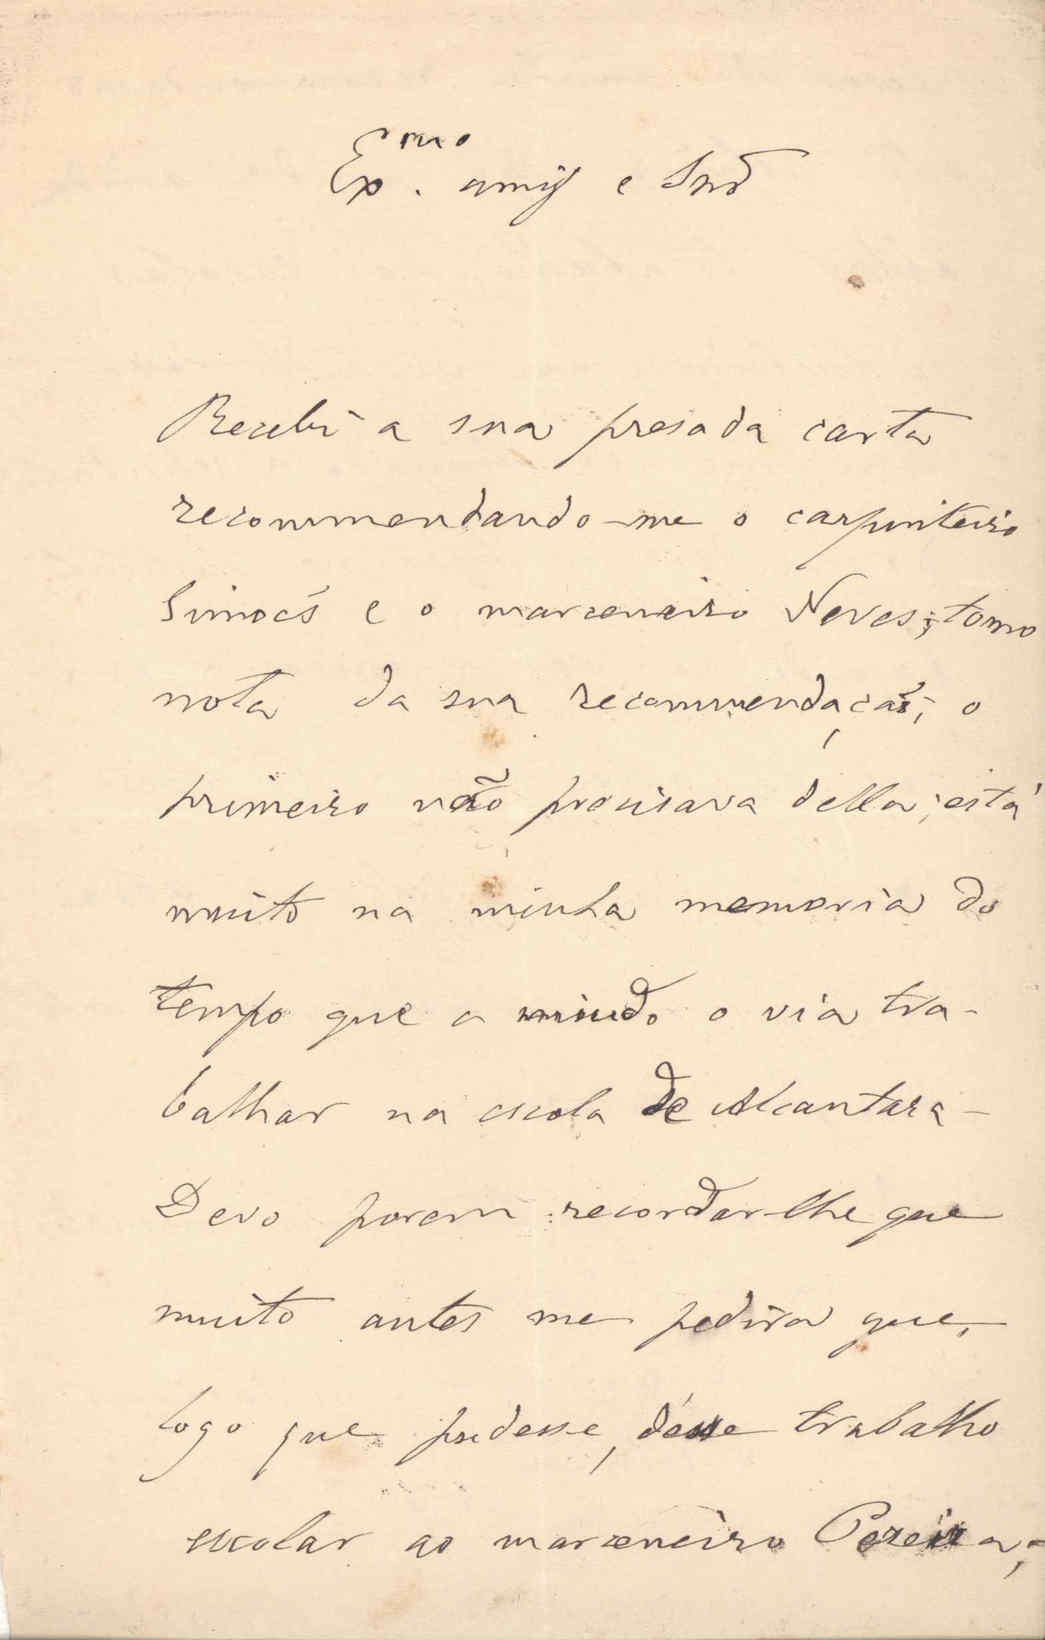 Ex.mo amigo e Snr
Recebi a sua presada carta
recommendando-me o carpinteiro
Simoẽs e o marceneiro Neves; tomo
nota da sua recommendação; o
primeiro não precisava della; está
muito na minha memoria do
tempo que a miudo o via tra-
balhar na escola de Alcantara -
Devo porem recordar-lhe que
muito antes me pedira que,
logo que podesse, désse trabalho
escolar ao marceneiro Pereira;